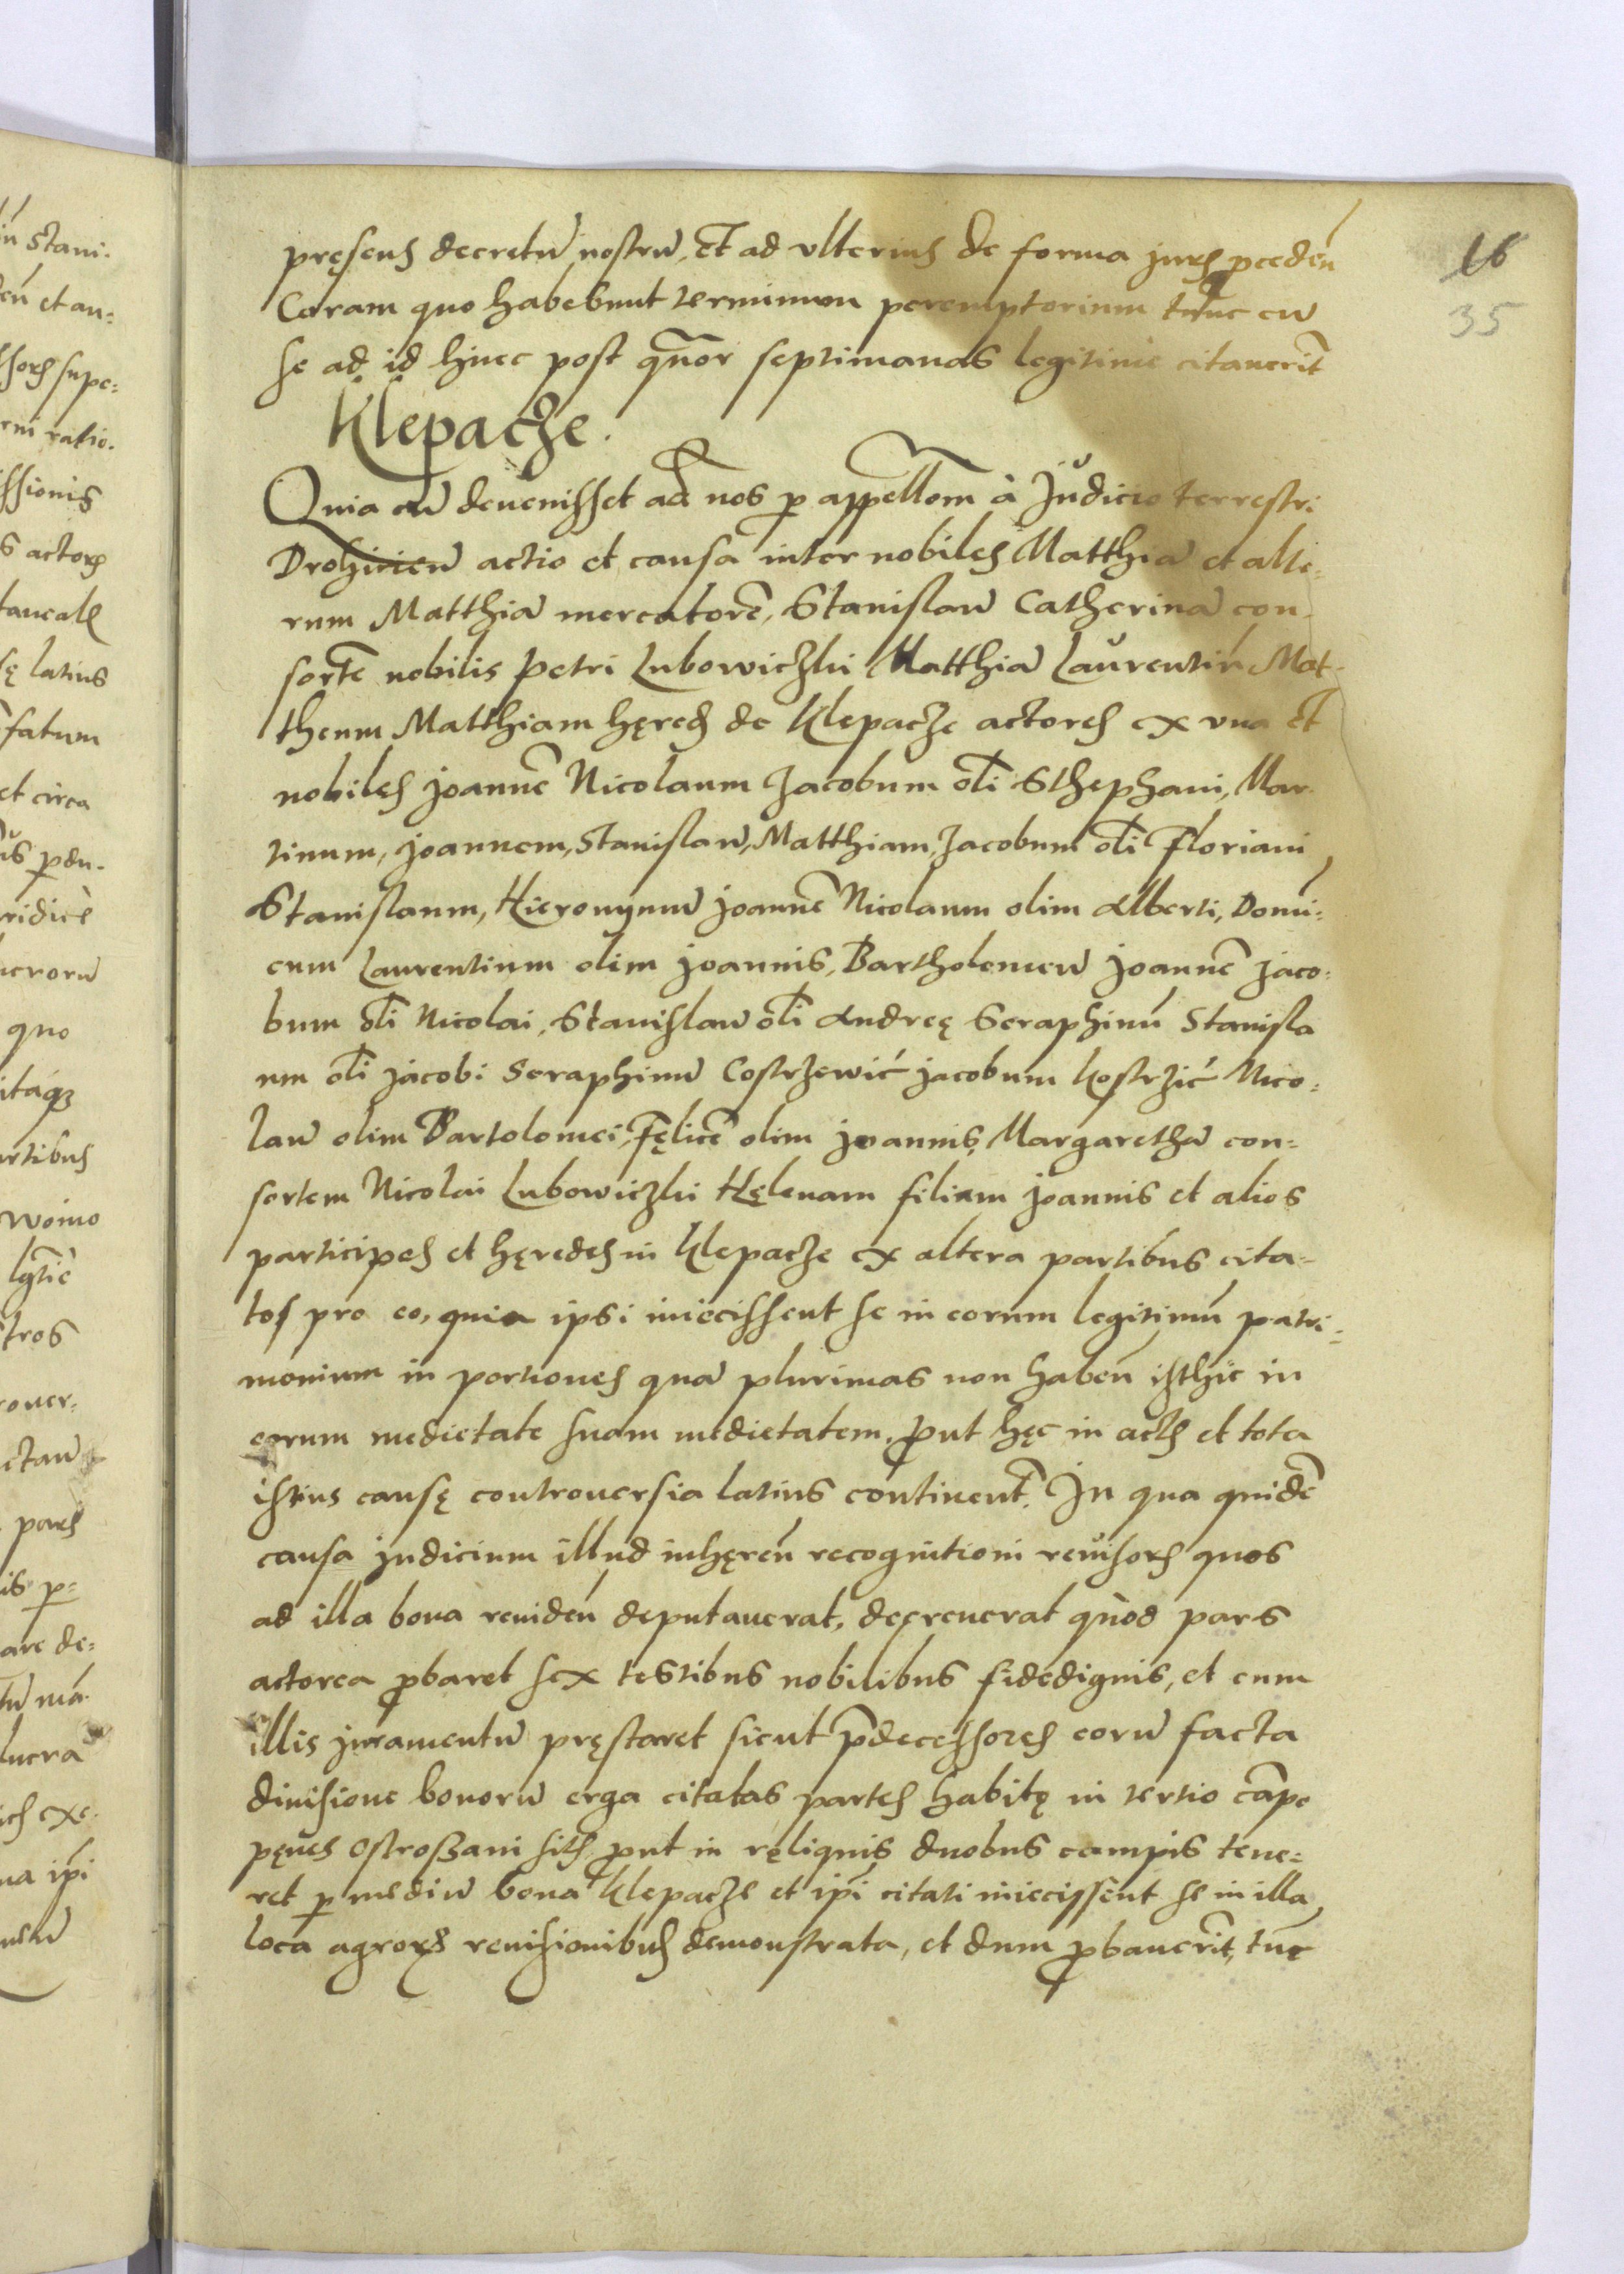 16
35
pręsens decretū nostrū, et ad vlterius de forma juris pcedeń
Coram quo habebunt terminum peremptorium tunc cū
se ad id hinc post quor septimanas legitime citauerit
Klepacze.
Quia cū deuenisset ad nos p appellom à Judicio terrestri
Drohicień actio et causa inter nobiles Matthiā et alte-
rum Matthiā mercatorē, Stanislaū Catherinā con-
sortē nobilis Petri Lubowiczki Matthiā Laurentiū Mat-
theum Matthiam hęreds de Klepacze actores ex vna et
nobiles Joannē Nicolaum Jacobum oli Sthephani, Mar-
tinum, Joannem, Stanislaū, Matthiam, Jacobum oli Floriani,
Stanislaum, Hieronymū Joannē Nicolaum olim Alberti, Domi-
cum Laurentium olim Joannis, Bartholomeū Joannē Jaco-
bum oli Nicolai, Stanislaū oli Andreę Seraphinū Stanisla
um oli Jacobi Seraphinū Costrzewić Jacobum Kostrzić Nico-
laū olim Bartolomei, Fęlicē olim Joannis, Margarethā con-
sortem Nicolai Lubowiczki Hęlenam filiam Joannis et alios
participes et hęredes in Klepacze ex altera partibus cita-
tos pro eo, quia ipsi iniecissent se in eorum legitimū patri-
monium in portiones quā plurimas non habeń isthic in
eorum medietate suam medietatem, put hęc in actis et tota
istius causę controuersia latius continent. In qua quidē
causa judicium illud inhęreń recognitioni reuisorę quos
ad illa bona reuideń deputauerat, decreuerat quòd pars
actorea pbaret sex testibus nobilibus fidedignis, et cum
illis juramentū pręstaret sicut pdecessores eorū facta
diuisione bonorū erga citatas partes habitę in tertio cāpo
pęnes Ostrożani sits put in reliquis duobus campis tene-
ret p mediū bona Klepacze et ipi citati iniecissent se in illa
loca agrorę reuisionibus demonstrata, et dum pbauerit, tūc